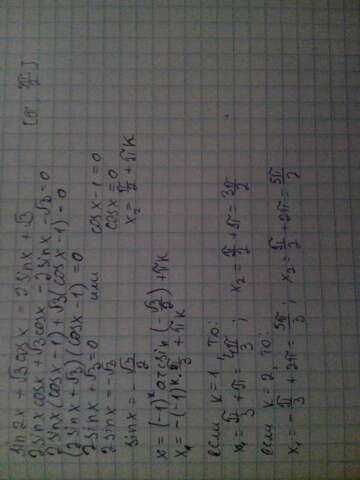 sin2x + √3 cosx = 2sinx + √3
2sinx cosx + √3 cosx - 2sinx - √3 = 0
2sinx (cosx - 1) + √3 (cosx - 1) = 0
(2sinx + √3)(cosx - 1) = 0
2sinx + √3 = 0 или cosx - 1 = 0
2sinx = -√3 cosx = 0
sinx = -√3/2 x₂ = π/2 + πk
x = (-1)ᵏ arcsin(-√3/2) + πk
x₁ = -(-1)ᵏ π/3 + πk
если k = 1, то:
x₁ = π/3 + π = 4π/3 ; x₂ = π/2 + π = 3π/2
если k = 2, то:
x₁ = -π/3 + 2π = 5π/3 ; x₂ = π/2 + 2π = 5π/2